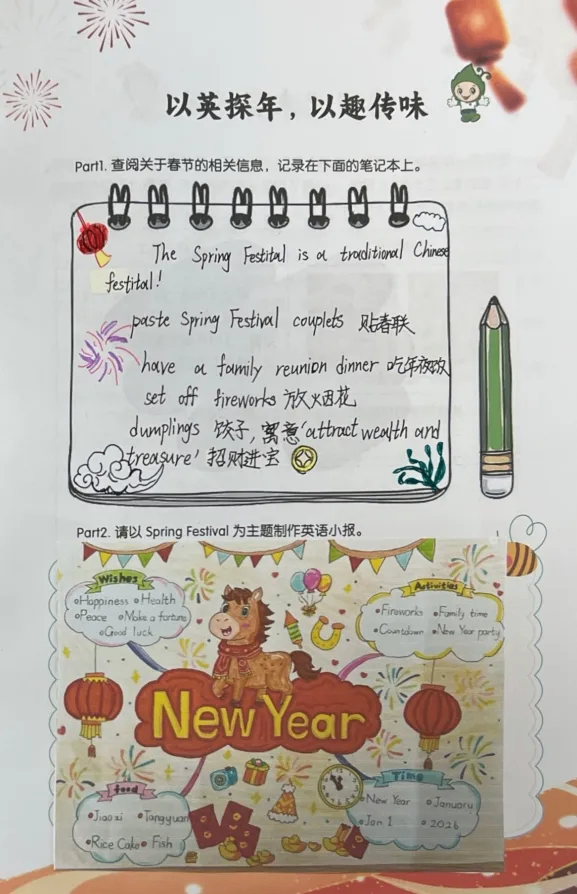 以英探年，以趣传味
Part1. 查阅关于春节的相关信息，记录在下面的笔记本上。
The Spring Festital is a traditional Chinese
festital!
paste Spring Festival couplets 贴春联
have a family reunion dinner 吃年夜饭
set off fireworks 放烟花
dumplings 饺子, 寓意'attract wealth and
treasure' 招财进宝
Part2. 请以 Spring Festival 为主题制作英语小报。
Wishes
Happiness Health
Peace Make a fortune
Good luck
Activities
Fireworks Family time
Countdown New Year party
New Year
food
Jiaozi Tangyuan
Rice Cake Fish
Time
New Year January
Jan 1 2026